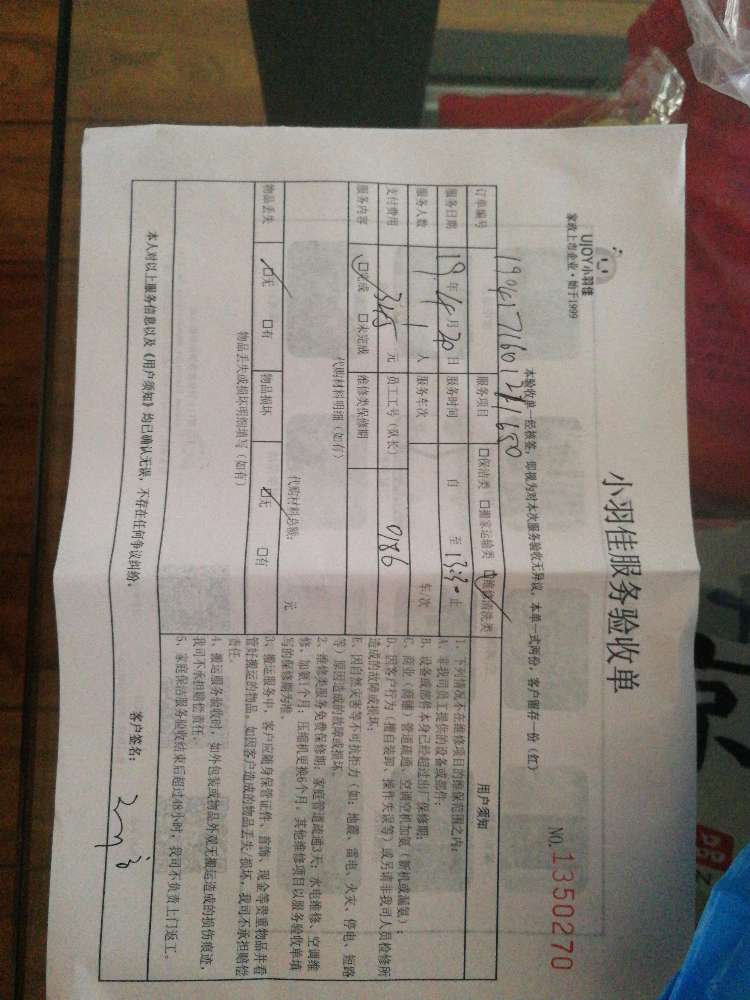 UJOY小羽佳
家政上市企业·始于1999
小羽佳服务验收单
NO. 1350270
本验收单一经核签，即视为对本次服务验收无异议，本单一式两份，客户留存一份（红）
订单编号
服务项目 口保洁类 口搬家运输类 口维修清洗类
服务日期 19年4月20日 服务时间 自 至 13:30 止
服务人数 1 人 服务车次 车/次
支付费用 345 元 员工工号（队长） 0186
服务内容 口完成 口未完成 维修类保修期
代购材料明细（如有）
代购材料总额： 元
物品丢失 口无 口有 物品损坏 口无 口有
物品丢失或损坏明细填写（如有）
用户须知
1、下列情况不在维修项目的维保范围之内：
A、非我司员工提供的设备或部件；
B、设备或部件本身已经超过出厂保修期；
C、商业（商铺）管道疏通、空调空机加氨（新机或漏氨）；
D、因客户行为（擅自装卸、操作失误等）或另请非我司人员检修所
造成的故障或损坏；
E、因自然灾害等不可抗拒力（如：地震、雷电、火灾、停电、短路
等）原因造成的故障或损坏。
2、维修类服务免费保修期：家庭管道疏通3天；水电维修、空调维
修、加氨1个月；压缩机更换6个月。其他维修项目以服务验收单填
写的保修期为准。
3、搬运服务中，客户应随身保管证件、首饰、现金等贵重物品并看
管好搬运的物品。如因客户造成的物品丢失/损坏，我司不承担赔偿
责任。
4、搬运服务验收时，如外包装或物品外观无搬运造成的损伤痕迹，
我司不承担赔偿责任。
5、家庭保洁服务验收结束后超过48小时，我司不负责上门返工。
本人对以上服务信息以及《用户须知》均已确认无误，不存在任何争议纠纷。
客户签名：